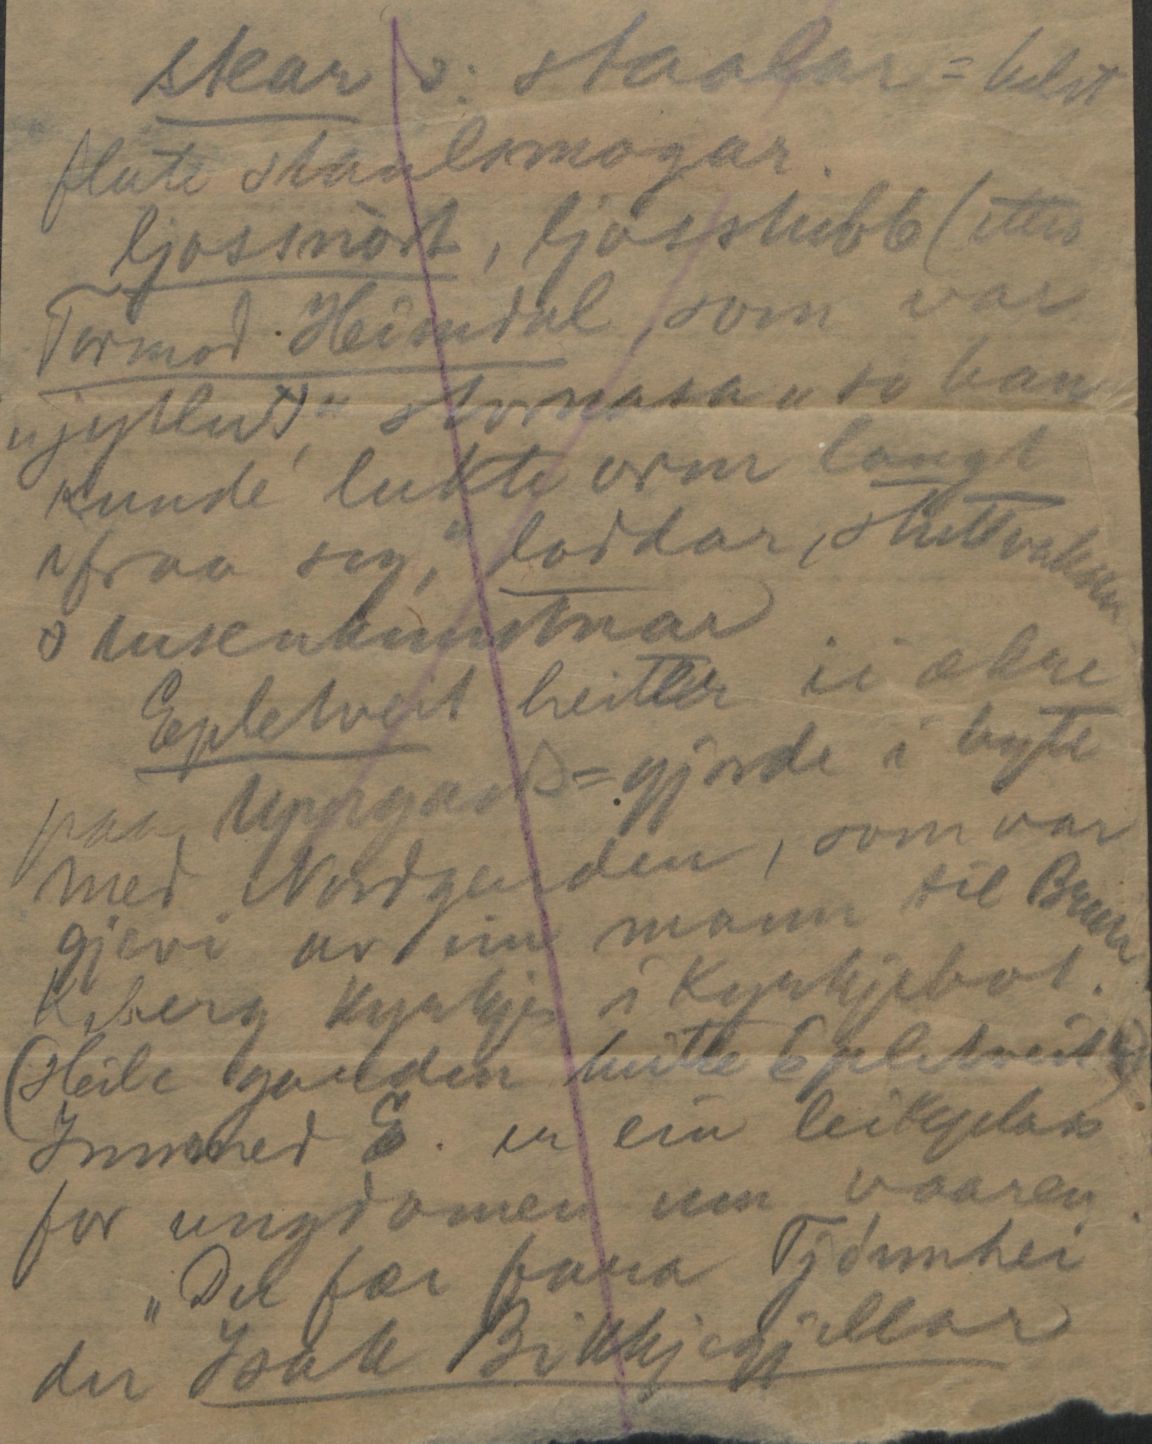 skar o: staalar = helst
flate staalsmogar.
ljossnòrt, ljosstubb (etter
Tormod Heimdal, som var
gjytlut), "stornasa" so han
kunde lukte orm langt
ifraa seg," loddar, stuttvaksen
tusenkunstnar
Epletveit heiter ii ækre
paa Uppgard = gjorde i byte
med Nordgarden, som var
gjevi av ein mann til
berg kyrkje i Kyrkjebot.
(Heile garden heitte Epletveit)
Innmed E. er ein leikeplass
for ungdomen um vaaren.
"Du fær fara Tjònnhei
der Isak Bikkjegjellar